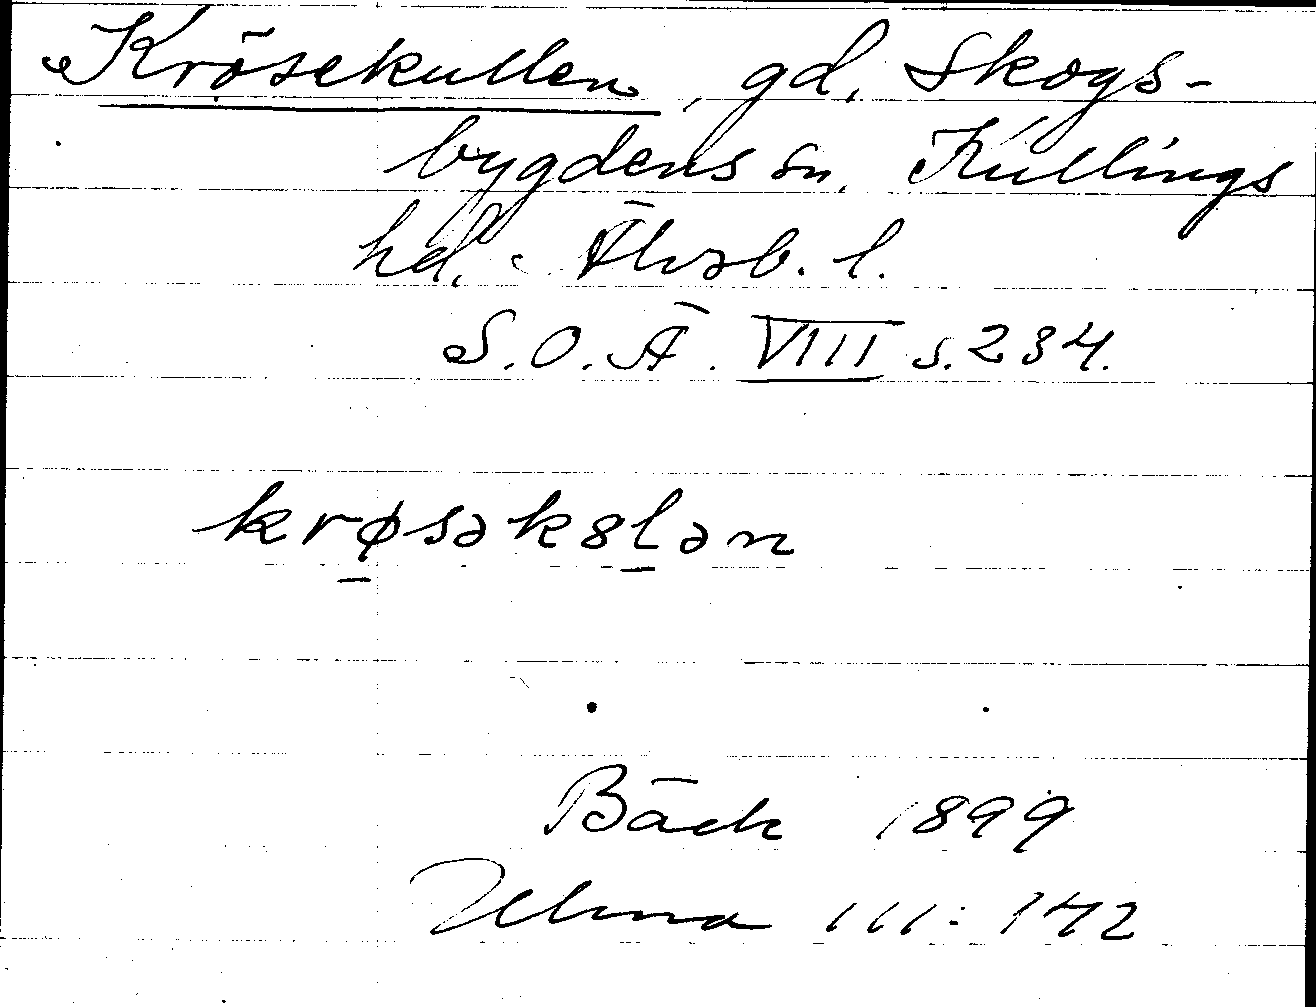 Krösekullen, gd, Skogs-
bygdens sn. Kullings
hd. Älvsb. l.
S.O.Ä. VIII s. 234.
krøsəkȣlən
Bäck 1899
Ulma III: 142